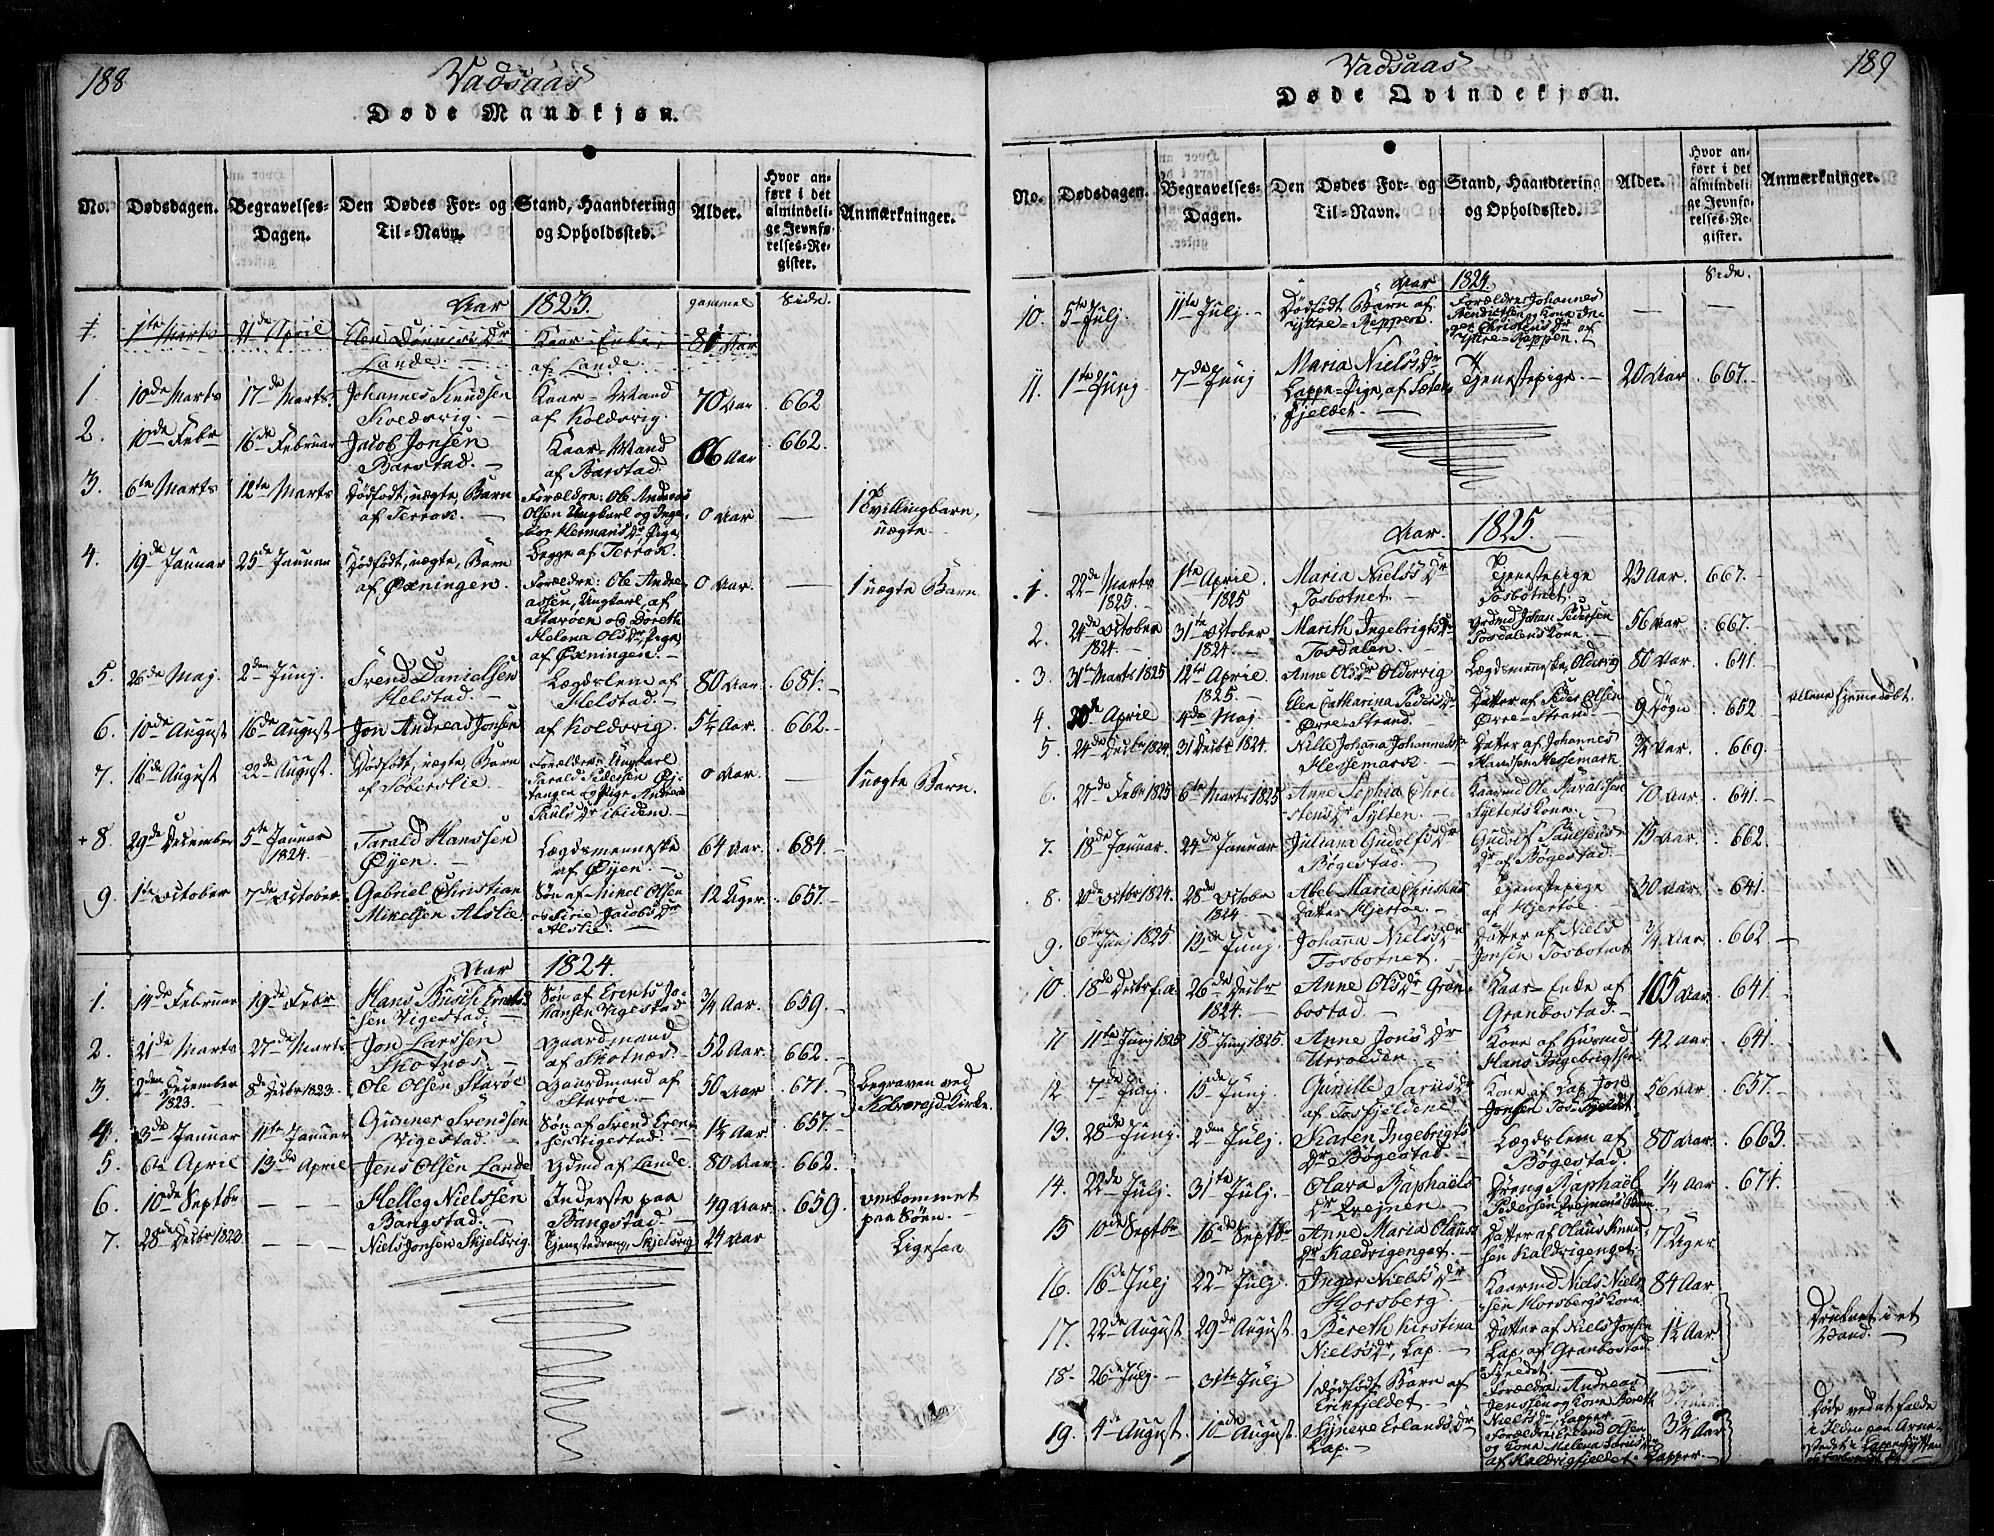 188
Vadsaas
Døde Mandkjøn.
No. Dødsdagen. Begravelses-Dagen. Den Dødes For- og Til-Navn. Stand, Haandtering og Opholdssted. Alder. Hvor anført i det almindelige Jevnførelses-Register. Anmærkninger.
Aar 1823. gammel Side.
1. 1te Marts 21de April Elen Dønnies Dr Lande. Kaar-Enke, af Lande. 81 Aar
1 10de Marts 17de Marts. Johannes Knudsen Koldvrig. Kaar-Mand af Koldvrig 70 Aar 662
2. 10de Febr 16de Februar Jacob Jonsen Barstad. Kaar-Mand af Barstad 86 Aar 662.
3. 6te Marts 12te Marts Dødfødt, uægte, Barn af Terrak. Forældre: Ole Andreas Olsen Ungkarl og Ingebor Hermans Dr Pige, begge af Terrak. 0 Aar — 1 Tvillingbarn, uægte.
4. 19de Januar 25de Januar Dødfødt, uægte, Barn af Øxningen. Forældre: Ole Andreassen, Ungkarl, af Starøen og Dorethe Helena Ols Dr, Pige af Øxningen. 0 Aar. — 1 uægte Barn.
5. 26de Maj 2den Junj. Svend Danielsen Helstad. Lægdslem af Helstad. 80 Aar. 681.
6. 10de August 16de August Jon Andreas Jonsen af Koldvrig. 5½ Aar. 662.
7. 16de August 22de August. Dødfødt, uægte, Barn af Soberslie. Forældre: Ungkarl Tarald Pedersen Øjstangen og Pige Andrea Pauls Dr ibidem. 0 Aar. — 1 uægte Barn.
+ 8. 29de December 5te Januar 1824. Tarald Hanssen Øyen. Lægdsmenneske af Øyen. 64 Aar. 684.
9. 1de October 7de October Gabriel Christian Mikelsen Alslie. Søn af Mikel Olsen og Sirie Jacobs Dr Alslie. 12 Uger. 657.
Aar 1824.
1. 14de Februar 19de Febr Hans Busch Erentsen Vigestad. Søn af Erents Johansen Vigestad ¾ Aar. 659.
2. 21de Marts 27de Marts Jon Larssen Skotnæs. Gaardmand af Skotnæs. 52 Aar. 662.
3. 2den December 1823. 8de Decbr 1823. Ole Olsen Starøe Gaardmand af Starøe. 50 Aar 671. Begraven ved Kolvereid Kirke.
4. 3de Januar 11te Januar Gunner Svendsen Vigestad. Søn af Svend Erentsen Vigestad 1½ Aar 657.
5. 6te April 13de April Jens Olsen Lande Gdmd af Lande. 80 Aar. 662.
6. 10de Septbr — — Helleg Nielssen Bangstad. Inderste paa Bangstad. 49 Aar 659. omkommet paa Søen.
7. 28de Decbr 1823. — — Niels Jonsen Skjelsvig. Tjenestedreng, Skjelsvig 24 Aar Ligesaa
189
Vadsaas
Døde Qvindekjøn.
No. Dødsdagen. Begravelses-Dagen. Den Dødes For- og Til-Navn. Stand, Haandtering og Opholdssted. Alder. Hvor anført i det almindelige Jevnførelses-Register. Anmærkninger.
Aar 1824. Side.
10. 5te Julj 11te Julj. Dødfødt Barn af Yttre-Reppen. Forældre Johannes af Yttre-Reppen. — —
11. 1te Junj 7de Junj Maria Niels Dr Lappe-Pige, af Fjeldet. Tjenestepige. 20 Aar 667.
Aar 1825.
1. 22de Marts 1825. 1te Aprile 1825 Maria Niels Dr Tosbotnet. Tjenestepige Tosbotnet. 23 Aar. 667.
2. 24de October 1824. 31te October 1824. Marith Ingebrigts Dr Tosdalen. Grdmd Johan Pedersen Tosdalens Kone. 56 Aar 667.
3. 31te Marts 1825 12te Aprie 1825. Anne Ols Dr Oldervig Lægdsmenneske, Oldervig 80 Aar. 641.
4. 20de Aprie 4de Maj. Elen Catharina Peders Dr Øvre-Strand. Datter af Peder Olsen Øvre-Strand. 9 Døgn 652 allene hjemedøbt.
5. 24de Decbr 1824. 31 Decbr 1824. Nille Johana Johannes Dr Hessemark. Datter af Johannes Hanssen Hessemark. ¾ Aar. 669.
6. 27de Febr 1825 6te Marts 1825 Anne Sophia Christens Dr Sylten. Kaarmd Ole Haraldsen Syltens Kone. 70 Aar. 641.
7. 18de Januar. 24de Januar Juliana Gudolfs Dr Bøgestad. Gudolf Paulsens Dr af Bøgestad. 15 Aar. 662.
8. 20de Octbr 1824. 28de October 1824. Abel Maria Christens Datter Hjertøe. Tjenestepige af Hjertøe. 30 Aar. 641.
9. 6te Junj 1825 13de Junj. Johanna Niels Dr Tosbotnet. Datter af Niels Jonsen Tosbotnet. ¾ Aar. 662
10. 18de Decbr f.a. 26de Decbr 1824. Anne Ols Dr Granbostad. Kaar-Enke af Granbostad. 105 Aar. 641.
11 11te Junj 1825 18de Junj 1825. Anne Jons Dr Urvolden. Kone af Husmd Hans Ingebrigtsen 42 Aar. 641.
12 7de Junj. 15de Junj. Gunille Sarius Dr af Tosfjeldene. Kone af Lap Jon Jonsen Tos-Fjeldet. 56 Aar. 657.
13. 28de Junij. 2den Julj. Karen Ingebrigts Dr Bøgestad. Lægdslem af Bøgestad. 80 Aar. 663.
14. 22de Julj. 31te Julj. Olava Raphaels Dr Drejnen. Dreng Raphael Pedersen Drejnens Barn. ¼ Aar 671.
15 10de Septbr 16de Septbr Anne Maria Olaus Dr Kaldvigenget. Datter af Olaus Knudsen Kaldvigenget. 7 Uger.
16. 16de Julj 22de Julj. Inger Niels Dr Horsberg. Kaarmd Niels Nielssen Horsbergs Kone. 84 Aar
17. 22de August 29de August. Bereth Kirstina Niels Dr, Lap. Datter af Niels Jonsen Lap, af Granbostad Fjeldet. 1½ Aar Druknet i et Vand.
18. 26de Julj. 31te Julj 1 Dødfødt Barn af Eriksfjeldet. Forældre: Andreas Jenssen og Kone Bereth Niels Dr, Lapper. —
19. 4de August. 10de August. Synneve Erlands Dr Lap. Forældre: Erland Olsen og Kone Milena Sarius Dr af Kaldvigfjeldet. Lapper. 3¾ Aar Døde ved at falde i Ilden paa Arnestedet i